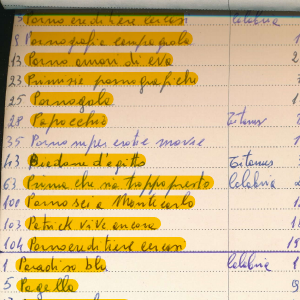 5 Porno ereditiere cercasi Calabria
8 Pornografia campagnola 1
13 Porno amori di eva 2
23 Primizie pornografiche
25 Pornogola 1
28 Papocchio Titanus
35 Porno super erotic movie 1
43 d'egitto Titanus
63 Prima che sia troppo presto Calabria
100 Porno sei a Montecarlo 1
103 Patrick vive ancora 18
104 Porno ereditiere cercasi 19
1 Paradiso blu Calabria 1
5 Pagella 9